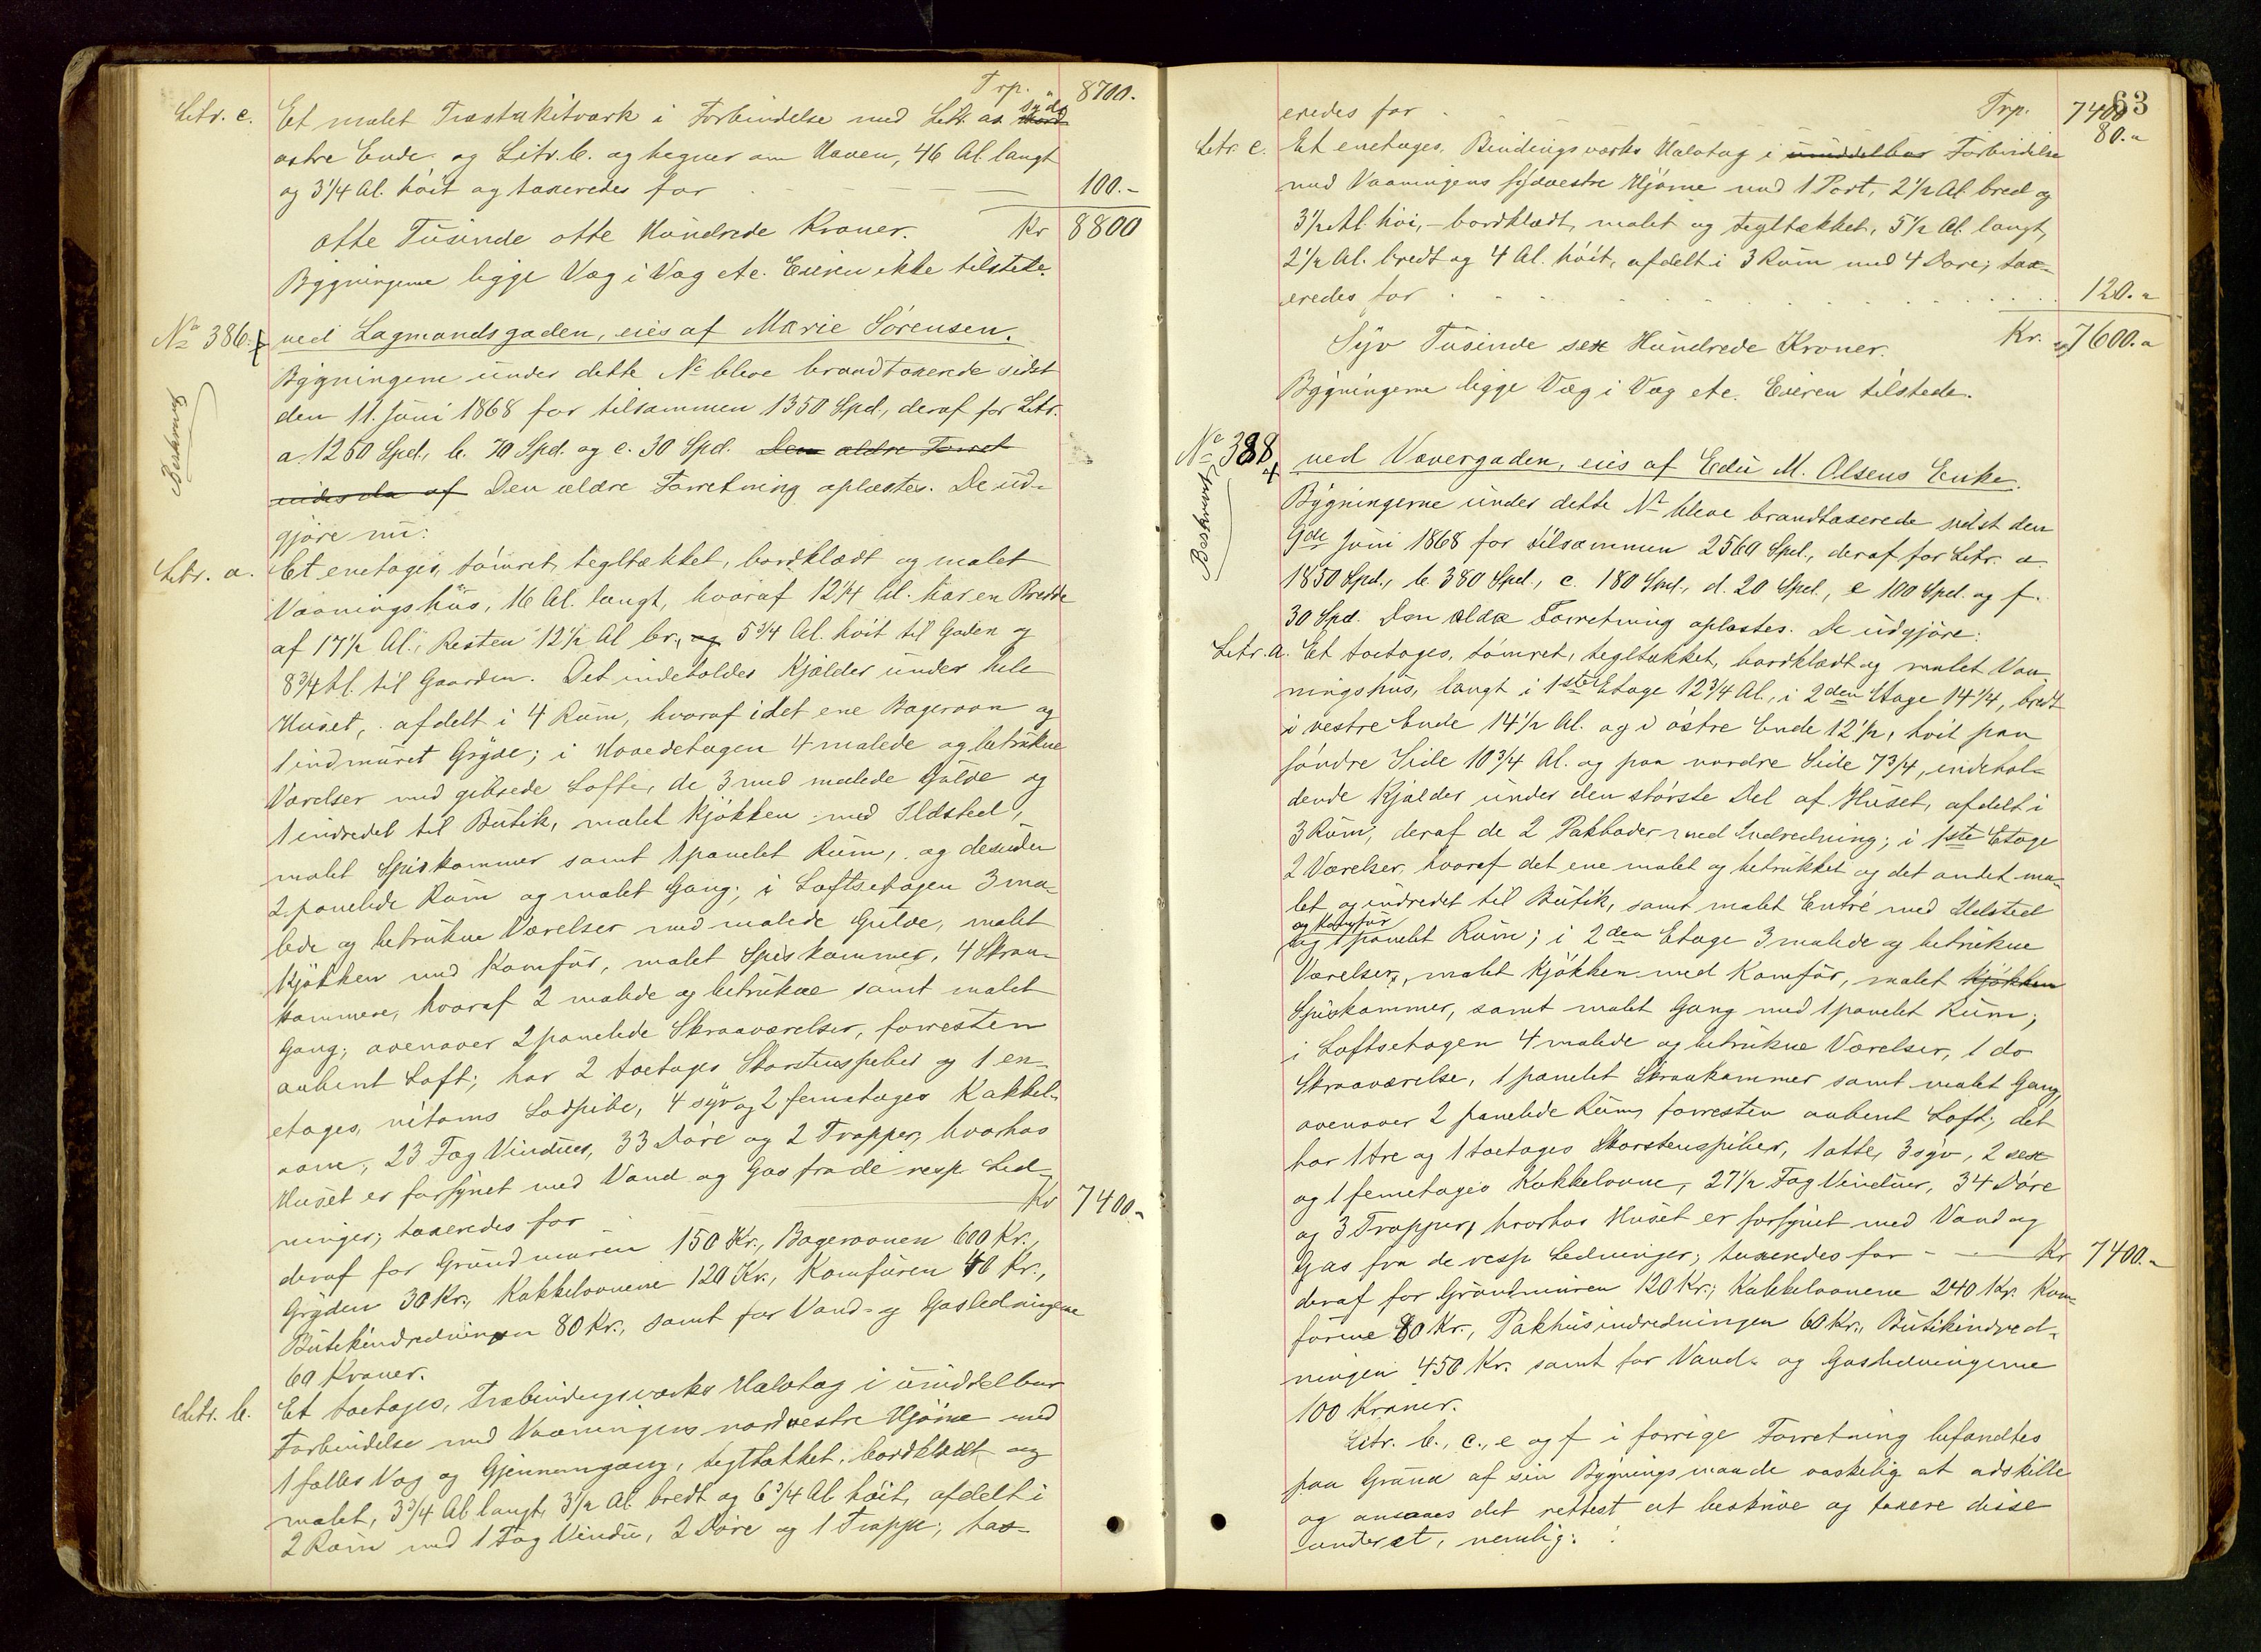 Trp. 8700.-
Litr. c. Et malet Træstakitværk i Forbindelse med Litr. as syd-
østre Ende og Litr. b. og hegner om Haven, 46 Al. langt
og 3 1/4 Al. høit og taxeredes for 100.-
Otte Tusinde otte Hundrede Kroner. Kr 8800
Bygningerne ligge Væg i Væg etc. Eieren ikke tilstede.
No 386. ved Lagmandsgaden, eies af Marie Sørensen.
Beskrevet
Bygningerne under dette No bleve brandtaxerede sidst
den 11. Juni 1868 for tilsammen 1350 Spd., deraf for Litr.
a 1250 Spd., b. 70 Spd. og c. 30 Spd. Den ældre Forret
af Den ældre Forretning oplæstes. De ud-
gjøre nu:
Litr. a. Et enetages, tømret, tegltækket, bordklædt og malet
Vaaningshus, 16 Al. langt, hvoraf 12 1/4 Al. har en Bredde
af 17 1/2 Al., Resten 12 1/2 Al br., og 5 3/4 Al. høit til Gaden og
8 3/4 Al. til Gaarden. Det indeholder Kjælder under hele
Huset, afdelt i 4 Rum, hvoraf i det ene Bagerovn og
1 indmuret Gryde; i Hovedetagen 4 malede og betrukne
Værelser med gibsede Lofte, de 3 med malede Gulve og
1 indredet til Butik, malet Kjøkken med Ildsted,
malet Spiskammer samt 1 panelet Rum, og desuden
2 panelede Rum og malet Gang; i Loftsetagen 3 ma-
lede og betrukne Værelser med malede Gulve, malet
Kjøkken med Komfur, malet Spiskammer, 4 Skraa-
kammere, hvoraf 2 malede og betrukne samt malet
Gang; ovenover 2 panelede Skraaværelser, forresten
aabent Loft; har 2 toetages Skorstenspiber og 1 en-
etages, Lodpibe, 4 syv og 2 femetages Kakkel-
ovne, 23 Fag Vinduer, 33 Døre og 2 Trapper, hvorhos
Huset er forsynet med Vand og Gas fra de resp Led-
ninger; taxeredes for Kr 7400.-
deraf for Grundmuren 150 Kr., Bagerovnen 600 Kr.,
Gryden 30 Kr., Kakkelovnene 120 Kr., Komfuren 40 Kr.,
Butikindredningen 80 Kr., samt for Vand- og Gasledningerne
60 Kroner.
Litr. b. Et toetages, Træbindingsværks Halvtag i umiddelbar
Forbindelse med Vaaningens nordvestre Hjørne med
1 fælles Væg og Gjennemgang, tegltækket, bordklædt og
malet, 3 3/4 Al. langt, 3 1/2 Al. bredt og 6 3/4 Al høit, afdelt i
2 Rum med 1 Fag Vindu, 2 Døre og 1 Trappe; tax-
63
Trp. 7400
eredes for 80.-
Litr. c. Et enetages, Bindingsværks Halvtag i umiddelbar Forbindelse
med Vaaningens sydvestre Hjørne med 1 Port, 2 1/2 Al. bred og
3 1/2 Al. høi, - bordklædt, malet og tegltækket, 5 1/2 Al. langt,
2 1/2 Al. bredt og 4 Al. høit, afdelt i 3 Rum med 4 Døre; tax-
eredes for 120.-
Syv Tusinde sex Hundrede Kroner. Kr. 7600.-
Bygningerne ligge Væg i Væg etc. Eieren tilstede.
No 388 ved Vævergaden, eies af Edu M. Olsens Enke.
Beskrevet
Bygningerne under dette No bleve brandtaxerede sidst den
9de Juni 1868 for tilsammen 2560 Spd., deraf for Litr. a
1850 Spd., b. 380 Spd., c. 180 Spd., d. 20 Spd., e 100 Spd. og f.
30 Spd. Den ældre Forretning oplæstes. De udgjøre:
Litr. a. Et toetages, tømret, tegltækket, bordklædt og malet Vaa-
ningshus, langt i 1ste Etage 12 3/4 Al., i 2den Etage 14 1/4, bredt
i vestre Ende 14 1/2 Al. og i østre Ende 12 1/2, høit paa
søndre Side 10 3/4 Al. og paa nordre Side 7 3/4, indehol-
dende Kjælder under den største Del af Huset, afdelt i
3 Rum, deraf de 2 Pakboder med Indredning; i 1ste Etage
2 Værelser, hvoraf det ene malet og betrukket og det andet ma-
let og indredet til Butik, samt malet Entré med Ildsted
og Komfur
og 1 panelet Rum; i 2den Etage 3 malede og betrukne
Værelser, malet Kjøkken med Komfur, malet Kjøkken
Spiskammer, samt malet Gang med 1 panelet Rum;
i Loftsetagen 4 malede og betrukne Værelser, 1 do
Skraaværelse, 1 panelet Skraakammer samt malet Gang,
ovenover 2 panelede Rum, forresten aabent Loft; det
har 1 tre og 1 toetages Skorstenspiber, 1 otte, 3 syv, 2 sex
og 1 femetages Kakkelovne, 27 1/2 Fag Vinduer, 34 Døre
og 3 Trapper, hvorhos Huset er forsynet med Vand og
Gas fra de resp Ledninger; taxeredes for - Kr 7400.-
deraf for Grundmuren 120 Kr., Kakkelovnene 240 Kr. Kom-
furene 80 Kr., Pakhusindredningen 60 Kr., Butikindred-
ningen 450 Kr. samt for Vand- og Gasledningerne
100 Kroner.
Litr. b., c., e og f i forrige Forretning befandtes
paa Grund af sin Bygningsmaade vaskelig at adskille
og ansaaes det rettest at beskrive og taxere disse
underet, nemlig: